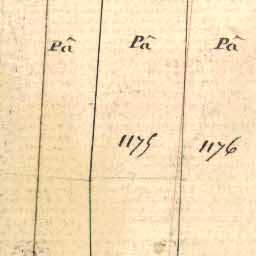 Pâ Pâ Pâ
1175 1176